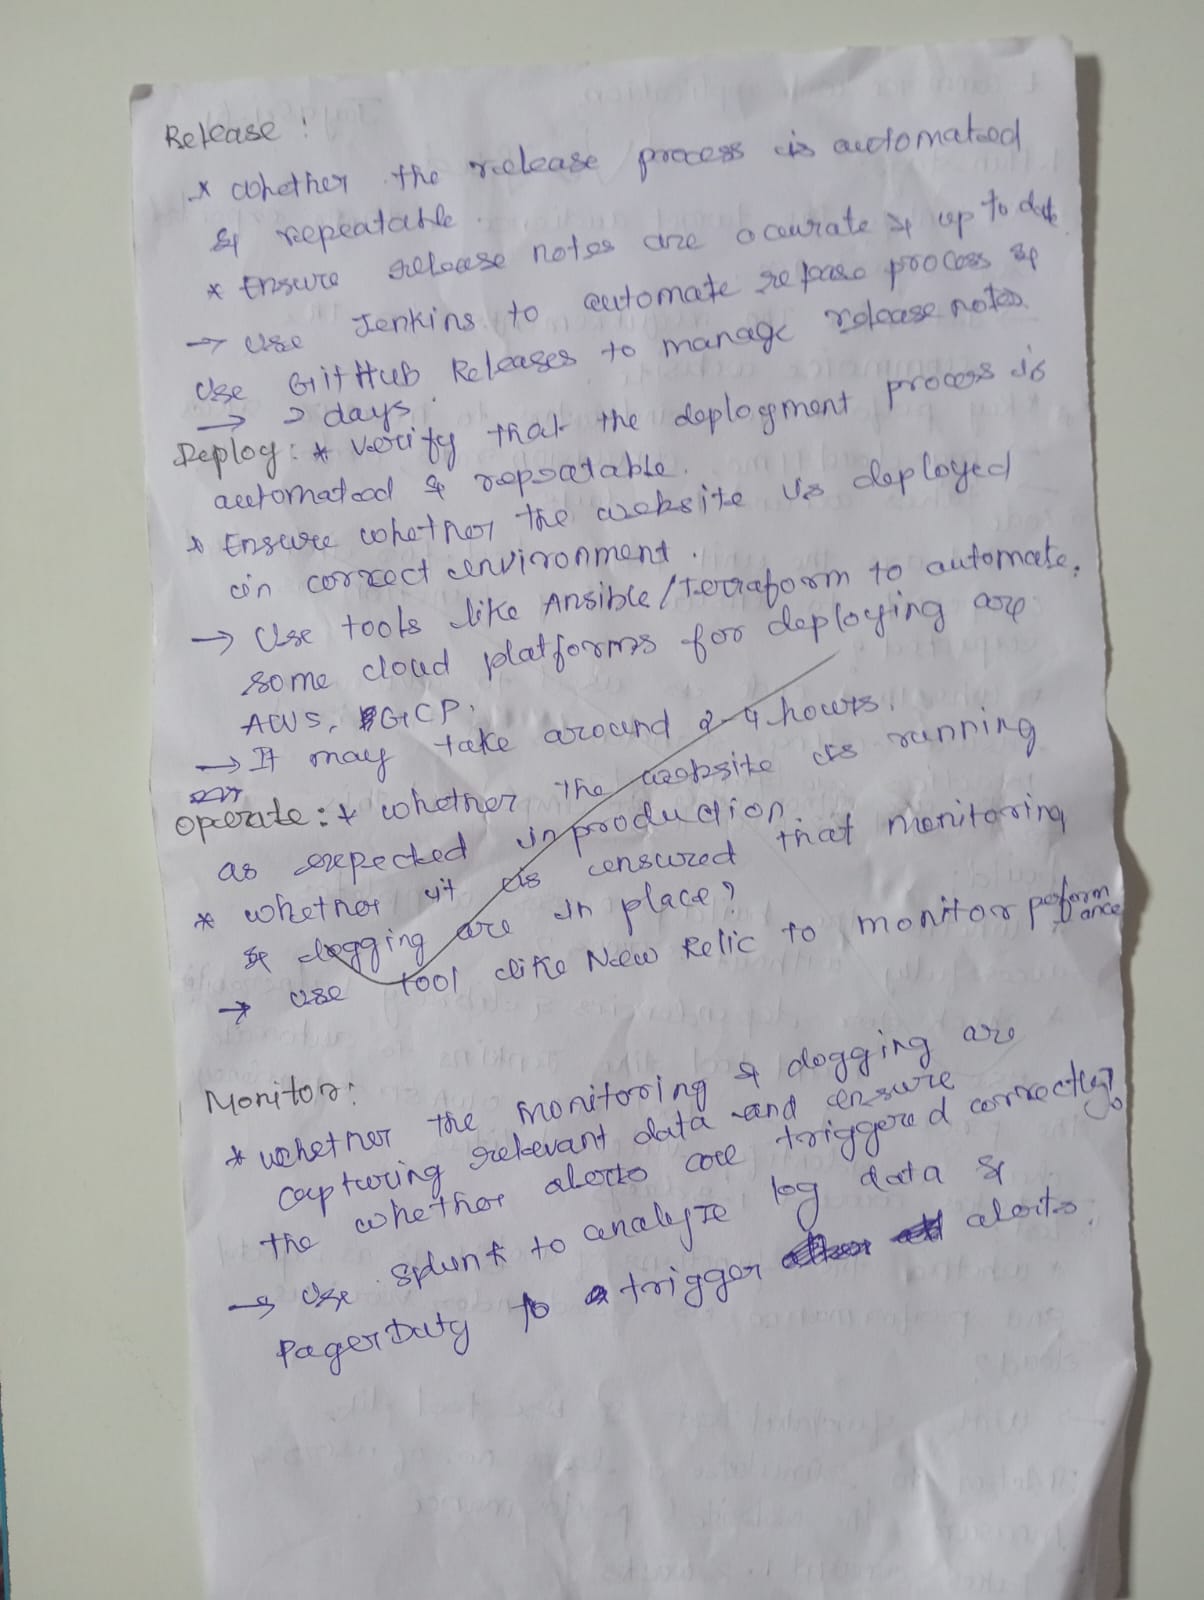 Release :
* Whether the release process is automated
& repeatable.
* Ensure release notes are accurate & up to date
→ Use Jenkins to automate release process &
Use GitHub Releases to manage release notes.
→ 2 days.
Deploy : * Verify that the deployment process is
automated & repeatable.
* Ensure whether the website is deployed
in correct environment.
→ Use tools like Ansible/Terraform to automate.
some cloud platforms for deploying are
AWS, GCP.
→ It may take around 2-4 hours.
Operate : * Whether the website is running
as expected in production.
* Whether it is ensured that monitoring
& logging are in place?
→ use tool like New Relic to monitor performance
Monitor :
* Whether the monitoring & logging are
capturing relevant data and ensure
the whether alerts are triggered correctly?
→ Use Splunk to analyze log data &
PagerDuty to trigger alerts.